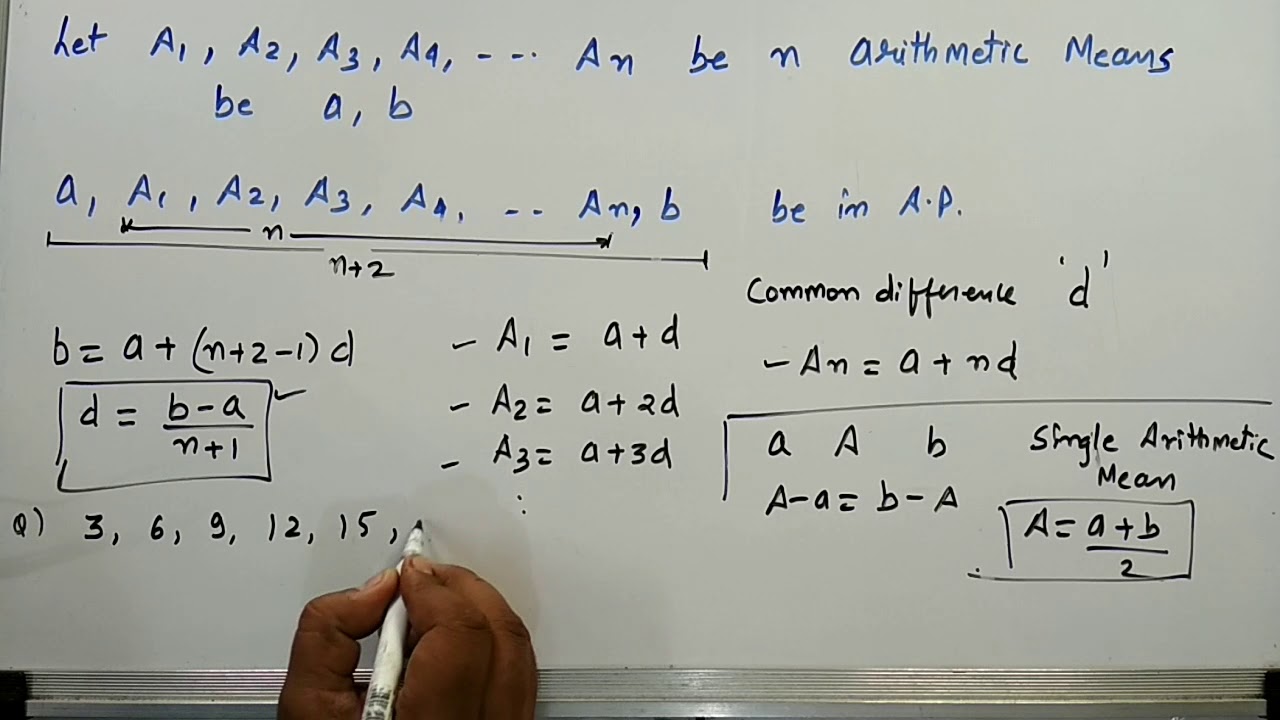 Let A1, A2, A3, A4, --.. An be n arithmetic Means
be a, b
a, A1, A2, A3, A4, -.. An, b be in A.P.
n
n+2
Common difference 'd'
b = a + (n+2-1) d
- A1 = a + d
- An = a + nd
d = b-a / n+1
- A2 = a + 2d
- A3 = a + 3d
⋮
a A b
Single Arithmetic
Mean
A-a = b-A
A = a+b / 2
Q) 3, 6, 9, 12, 15,